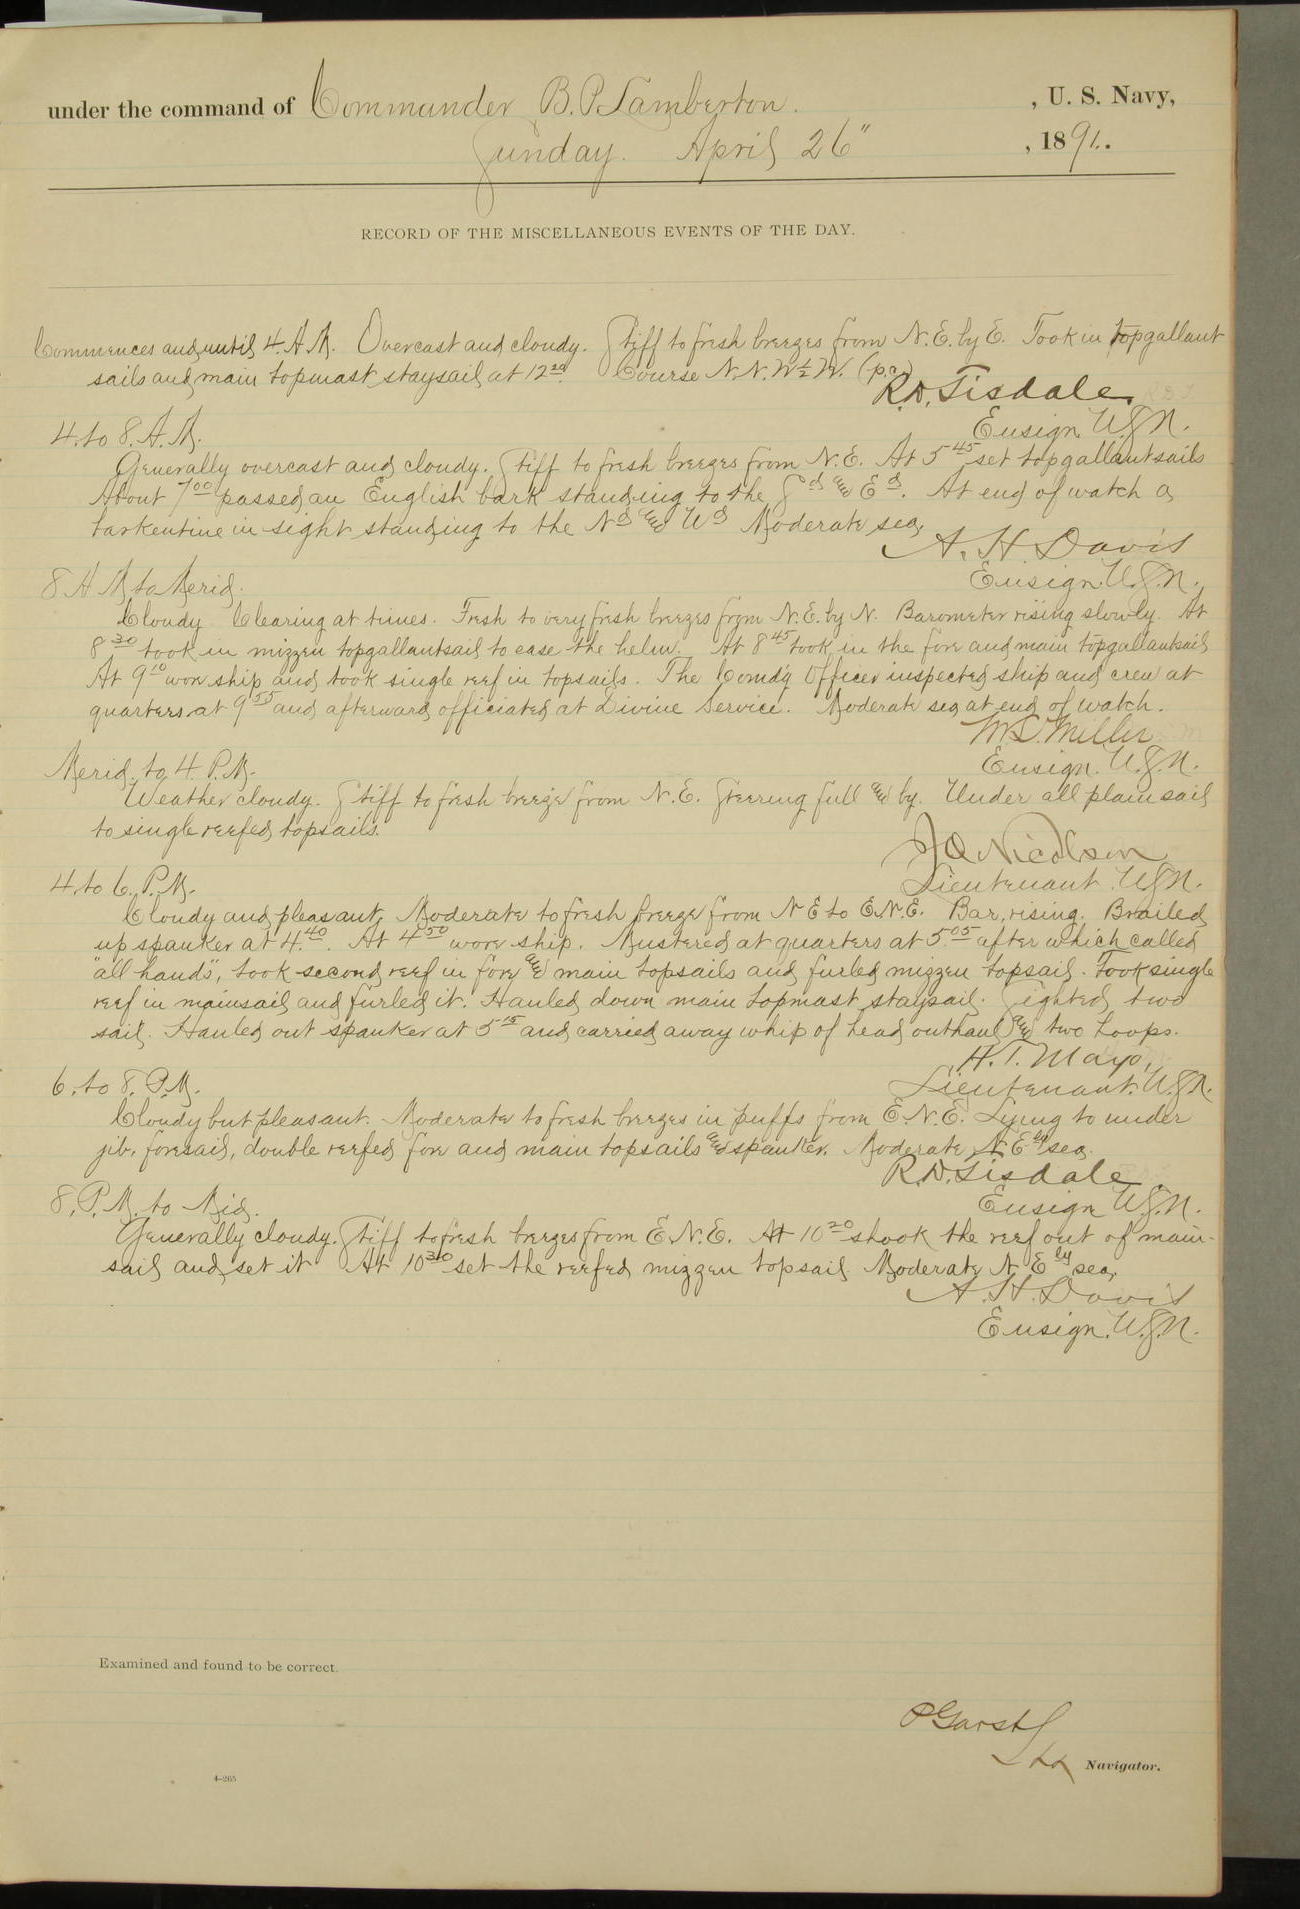 under the command of Commander B.P. Lamberton. , U. S. Navy,
Sunday. April 26" , 1891.
RECORD OF THE MISCELLANEOUS EVENTS OF THE DAY.
Commences and until 4. A.M. Overcast and cloudy. Stiff to fresh breezes from N.E. by E. Took in topgallant
sails and main topmast staysail at 12.20. Course N.N.W½W. (p.c.)
R.D. Tisdale.
Ensign U.S.N.
4. to 8. A.M.
Generally overcast and cloudy. Stiff to fresh breezes from N.E. At 5 45 set topgallantsails
About 7 00 passed an English bark standing to the Sd and Ed. At end of watch a
barkentine in sight standing to the Nd and Wd Moderate sea,
A. H. Davis
Ensign. U.S.N.
8 A M to Merid.
Cloudy Clearing at times. Fresh to very fresh breezes from N.E. by N. Barometer rising slowly. At
8 30 took in mizzen topgallantsail to ease the helm. At 8 45 took in the fore and main topgallantsail
At 9 10 wore ship and took single reef in topsails. The Comd'g Officer inspected ship and crew at
quarters at 9 55 and afterward officiated at Divine Service. Moderate sea at end of watch.
M.L. Miller
Ensign. U.S.N.
Merid. to 4. P.M.
Weather cloudy. Stiff to fresh breeze from N.E. Steering full and by. Under all plain sail
to single reefed topsails.
J.O. Nicolson
Lieutenant. U.S.N.
4. to 6. P.M.
Cloudy and pleasant, Moderate to fresh breeze from N E to E.N.E. Bar, rising. Brailed
up spanker at 4.40. At 4 50 wore ship. Mustered at quarters at 5.05 after which called
"all hands", took second reef in fore and main topsails and furled mizzen topsail. Took single
reef in mainsail and furled it. Hauled down main topmast staysail. Sighted two
sail. Hauled out spanker at 5 15 and carried away whip of head outhaul and two hoops.
H. T. Mayo,
Lieutenant. U.S.N.
6. to 8. P.M.
Cloudy but pleasant. Moderate to fresh breezes in puffs from E.N.E. Lying to under
jib, foresail, double reefed fore and main topsails and spanker. Moderate N.Ely sea.
R.D. Tisdale
Ensign U.S.N.
8. P.M. to Mid.
Generally cloudy. Stiff to fresh breezes from E.N.E. At 10 20 shook the reef out of main-
sail and set it At 10 30 set the reefed mizzen topsail Moderate N.Ely sea,
A. H. Davis
Ensign. U.S.N.
Examined and found to be correct.
P Garst
Navigator.
4—265